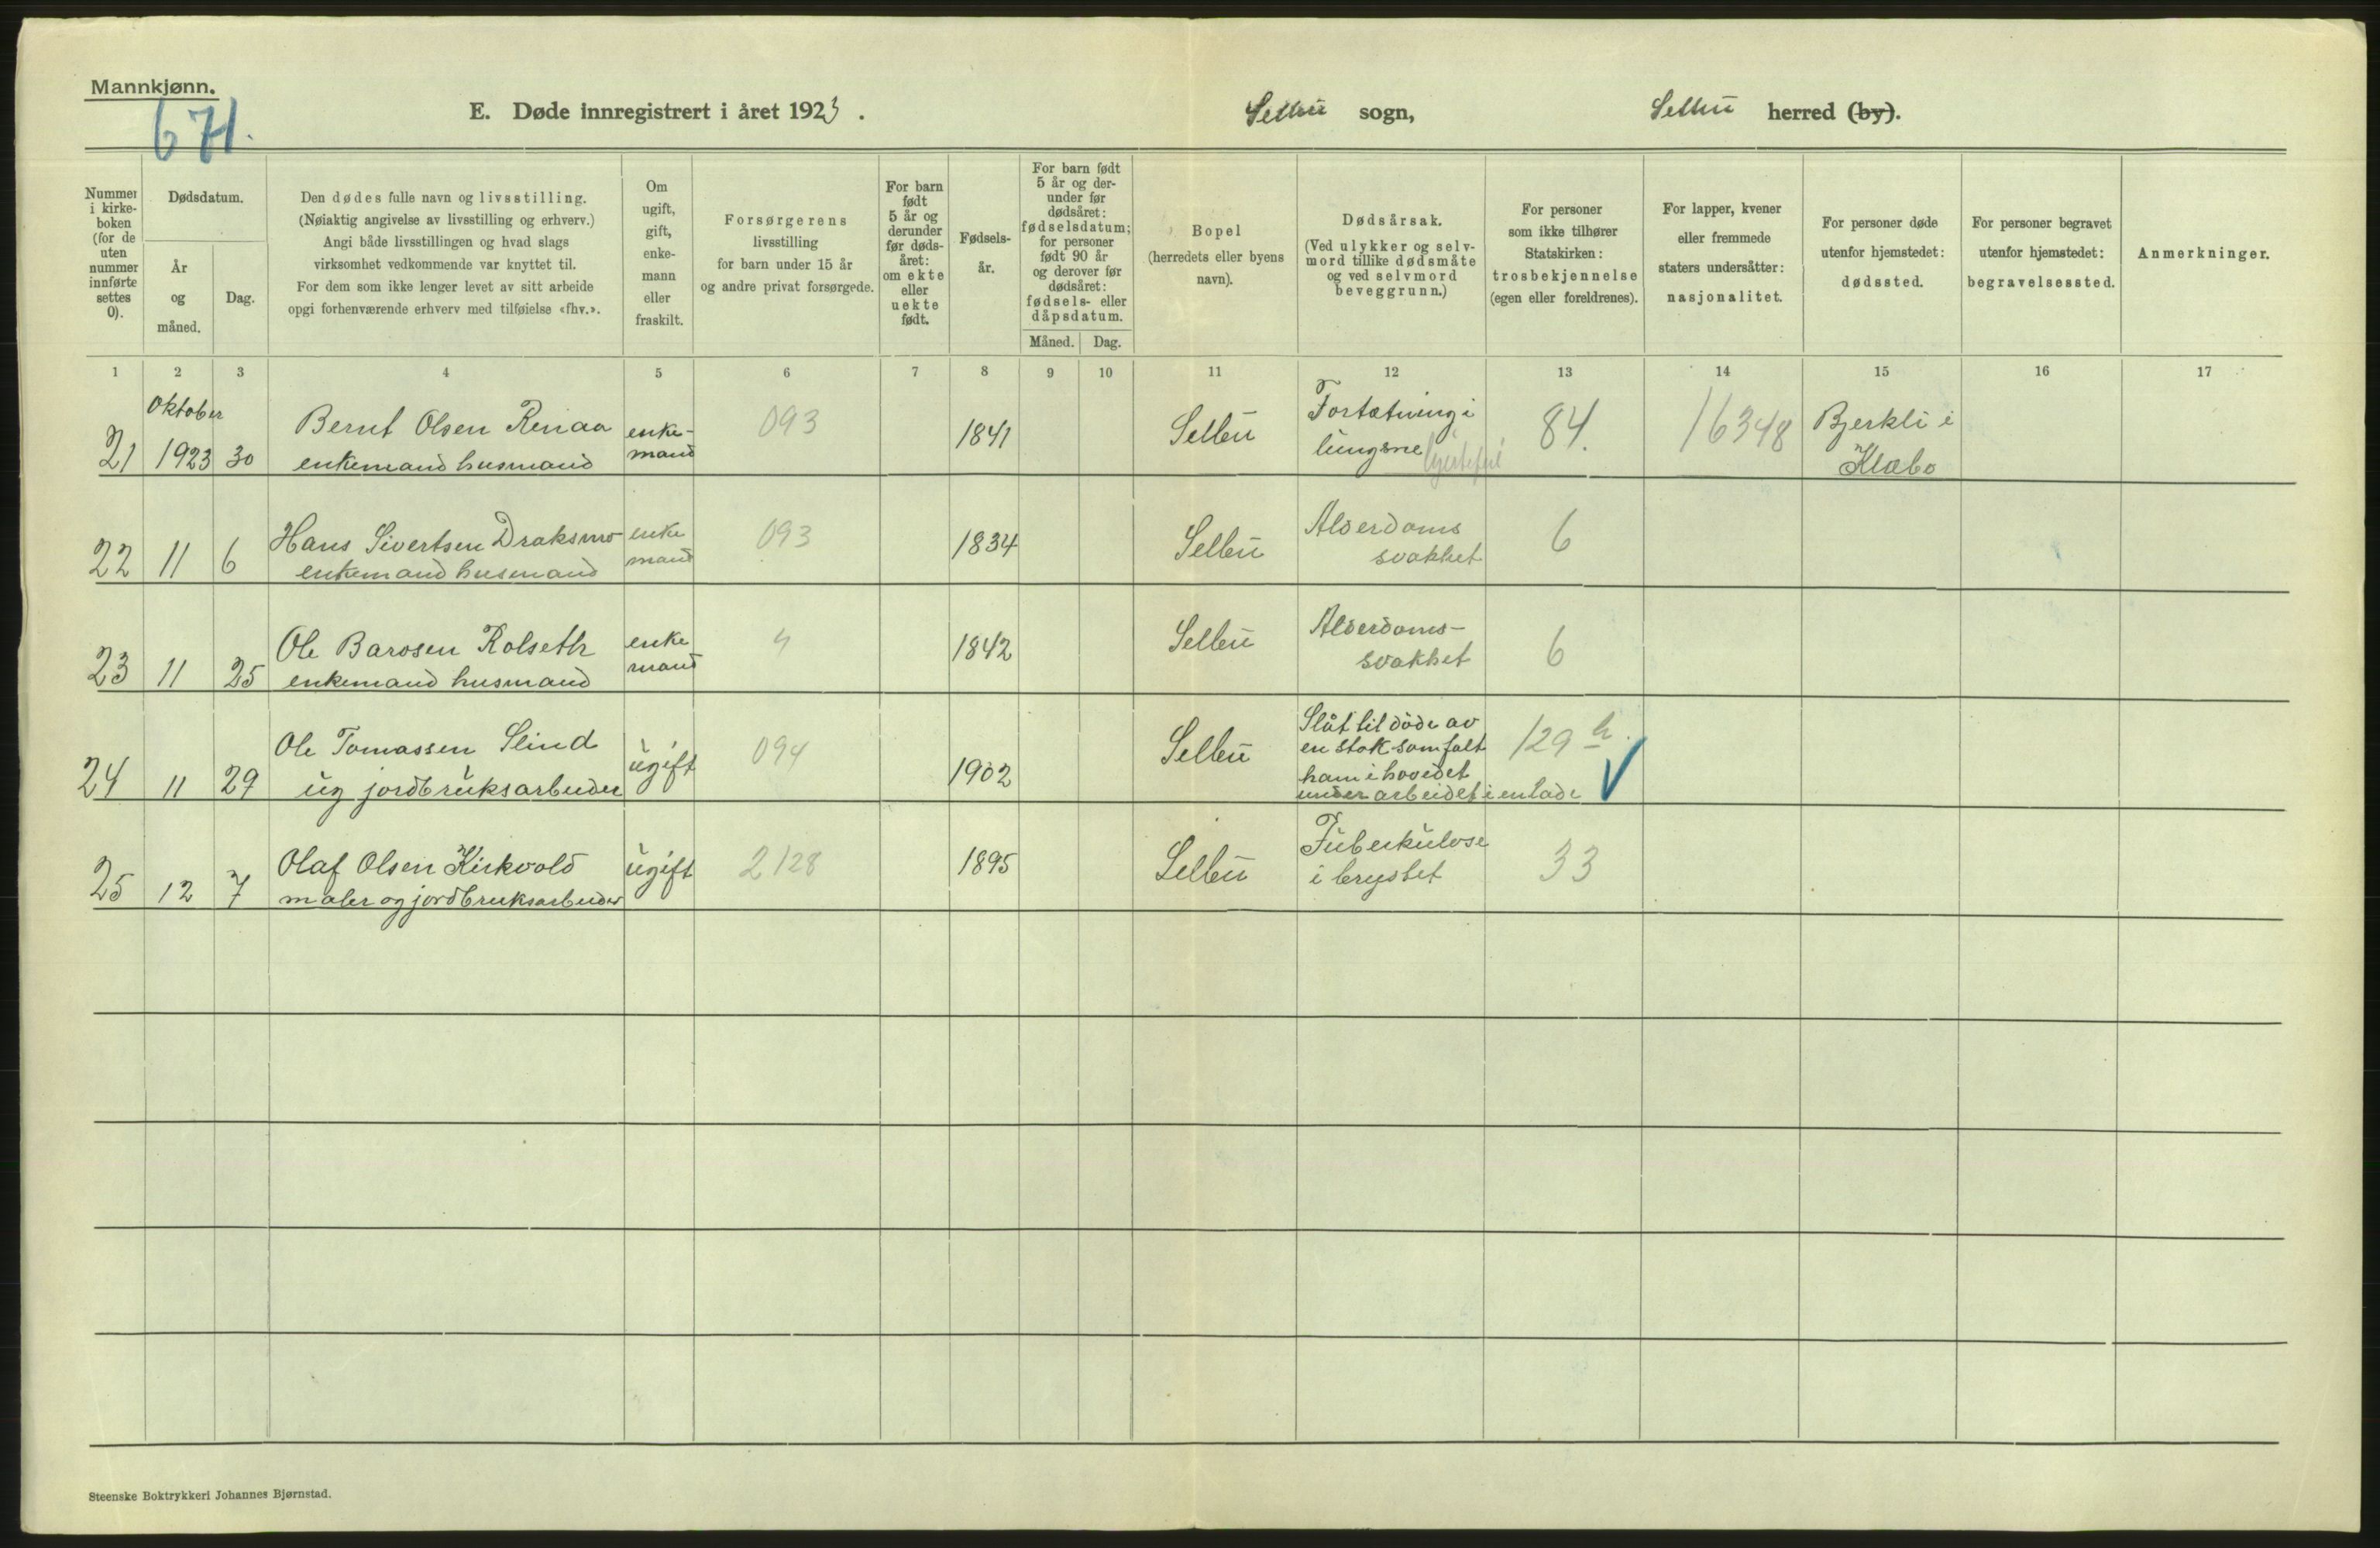 Mannkjønn.
671.
E. Døde innregistrert i året 1923.
Selbu sogn,
Selbu herred (by).
Nummer i kirke-
boken
(for de
uten
nummer
innførte
settes
0).
Dødsdatum.
År
og
måned.
Dag.
Den dødes fulle navn og livsstilling.
(Nøiaktig angivelse av livsstilling og erhverv.)
Angi både livsstillingen og hvad slags
virksomhet vedkommende var knyttet til.
For dem som ikke lenger levet av sitt arbeide
opgi forhenværende erhverv med tilføielse «fhv.».
Om
ugift,
gift,
enke-
mann
eller
fraskilt.
Forsørgerens
livsstilling
for barn under 15 år
og andre privat forsørgede.
For barn
født
5 år og
derunder
før døds-
året:
om ekte
eller
uekte
født.
Fødsels-
år.
For barn født
5 år og der-
under før
dødsåret:
fødselsdatum;
for personer
født 90 år
og derover før
dødsåret:
fødsels- eller
dåpsdatum.
Måned. Dag.
Bopel
(herredets eller byens
navn).
Dødsårsak.
(Ved ulykker og selv-
mord tillike dødsmåte
og ved selvmord
beveggrunn.)
For personer
som ikke tilhører
Statskirken:
trosbekjennelse
(egen eller foreldrenes).
For lapper, kvener
eller fremmede
staters undersåtter:
nasjonalitet.
For personer døde
utenfor hjemstedet:
dødssted.
For personer begravet
utenfor hjemstedet:
begravelsessted.
Anmerkninger.
1 2 3 4 5 6 7 8 9 10 11 12 13 14 15 16 17
Oktober
21 1923 30
Bernt Olsen Renaa
enkemand husmand
enke-
mand
093
1841
Selbu
Fortætning i
lungene hjertefeil
84.
16348
Bjerkli i
Klæbo
22 11 6
Hans Sivertsen Draksmo
enkemand husmand
enke
mand
093
1834
Selbu
Alderdoms
svakhet
6
23 11 25
Ole Barosen Rolseth
enkemand husmand
enke
mand
4
1842
Selbu
Alderdoms-
svakhet
6
24 11 29
Ole Tomassen Slind
ug jordbruksarbeider
ugift
094
1902
Selbu
Slåt til døde av
en stok som falt
ham i hovedet
under arbeidet i en lade
129 h.
25 12 7
Olaf Olsen Kirkvold
maler og jordbruksarbeider
ugift
2128
1895
Selbu
Tuberkulose
i brystet
33
Steenske Boktrykkeri Johannes Bjørnstad.